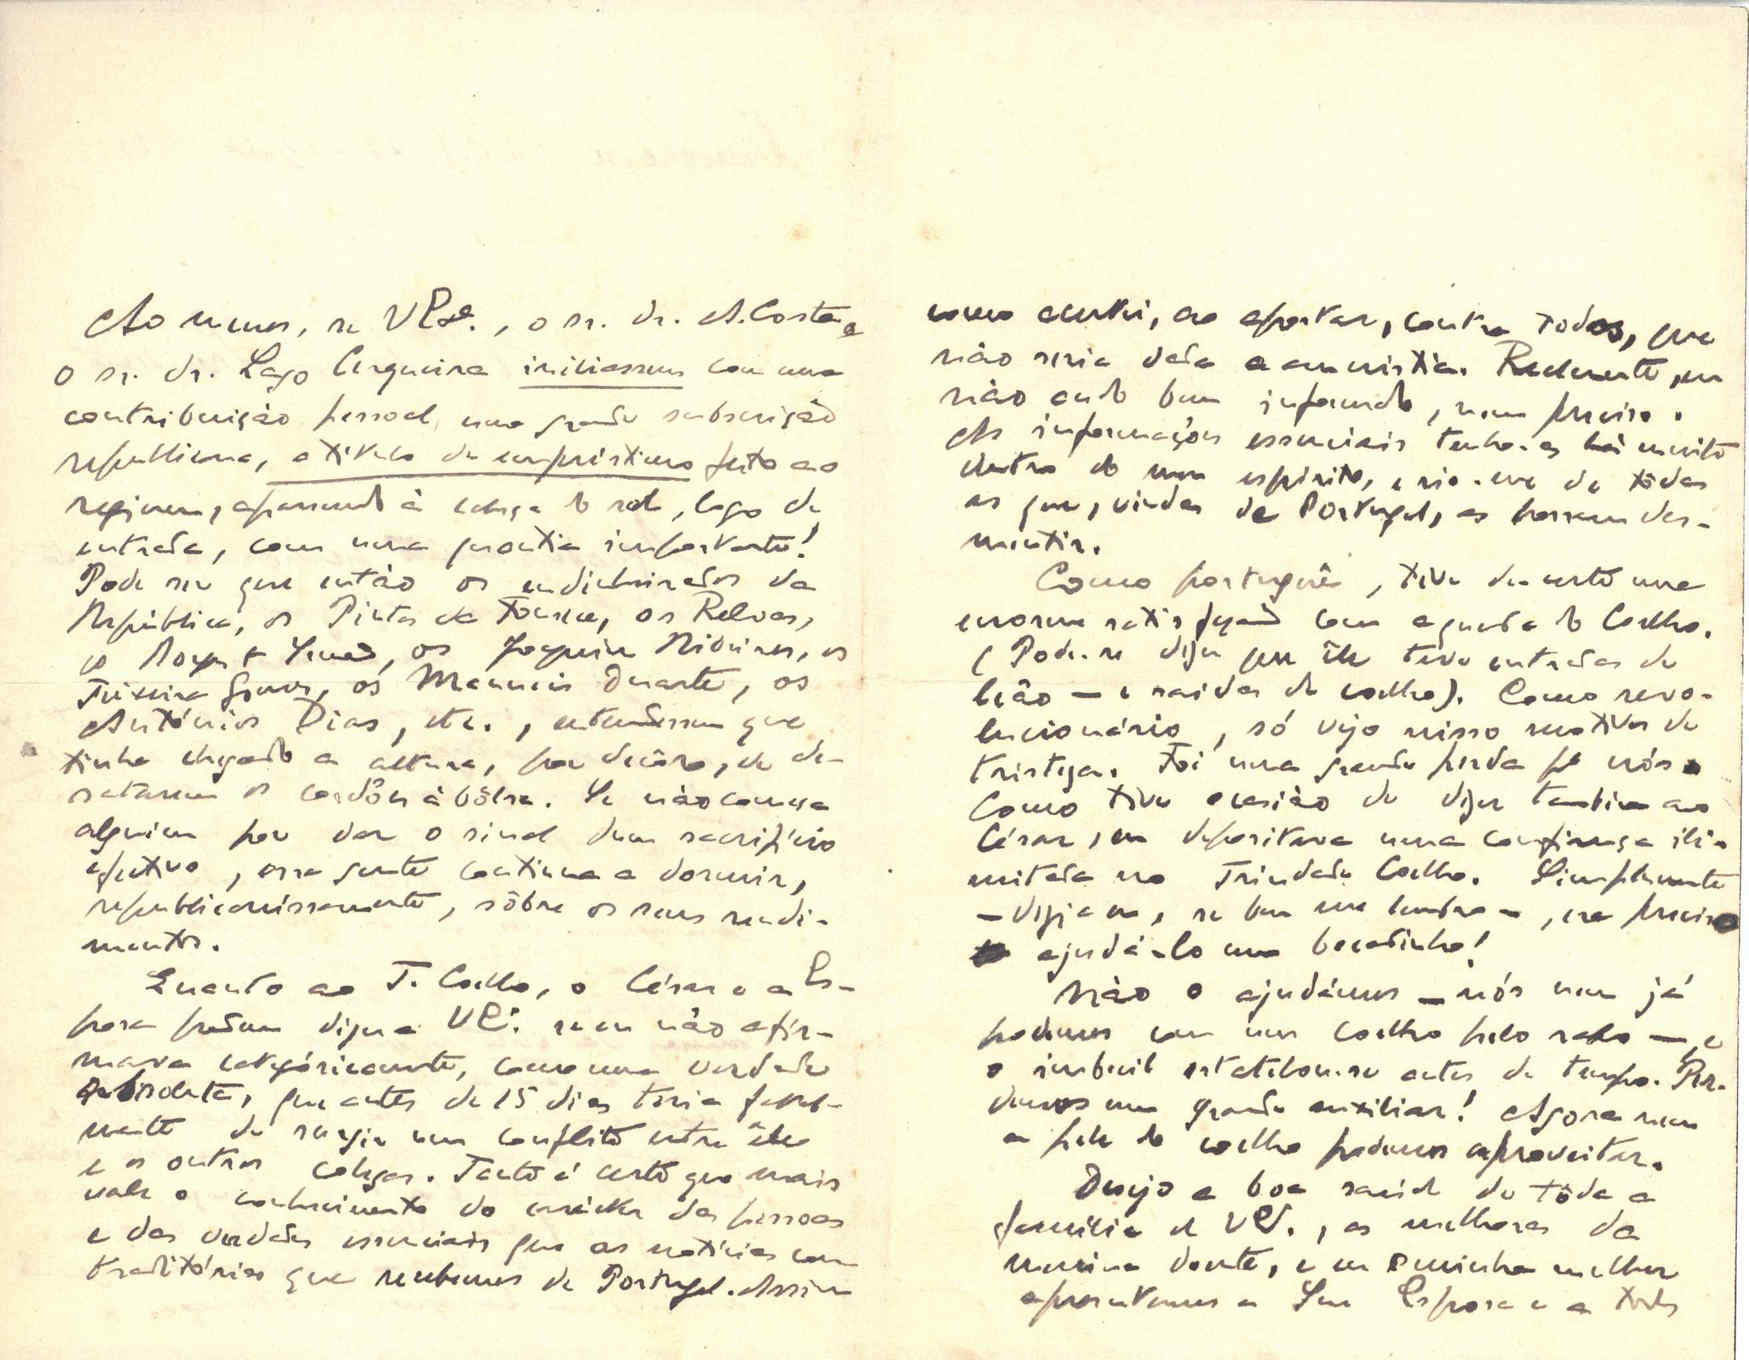 Ao menos, se V. Ex.ª, o sr. dr. A. Costa e
o sr. dr. Lago Cerqueira iniciassem com uma
contribuição pessoal, uma grande subscrição
republicana, a título de empréstimo feito ao
regimen, aparecendo à cabeça do rol, logo de
entrada, com uma quantia importante!
Pode ser que então os endinheirados da
República, os Pintos da Fonseca, os Relvas,
os, os Joaquim Ribeiros, os
Teixeira Gomes, os Manueis Duarte, os
Antónios Dias, etc., entendessem que
tinha chegado a altura, por decôro, de de-
satarem os cordões à bôlsa. Se não começa
alguem por dar o sinal dum sacrifício
efectivo, essa gente continua a dormir,
republicanissamente, sôbre os seus rendi-
mentos.
Quanto ao T. Coelho, o César e a Es-
posa podem dizer a V. Ex.ª se eu não afir-
mava categóricamente, como uma verdade
absoluta, que antes de 15 dias teria
de surgir um conflito entre êle
e os outros colegas. Tanto é certo que mais
vale o conhecimento do carácter das pessoas
e das verdades essenciais que as notícias con
traditórias que recebemos de Portugal. Assim
como acertei, ao apostar, contra todos, que
não seria dada a amnistia. Realmente, eu
não ando bem informado, nem preciso.
As informações essenciais tenho-as há muito
dentro do meu espírito, e rio-me de tôdas
as que, vindas de Portugal, as possam des-
mentir.
Como português, tive decerto uma
enorme satisfação com a queda do Coelho.
(Pode-se dizer que êle teve entradas de
leão — e saídas de coelho). Como revo-
lucionário, só vejo nisso motivos de
tristeza. Foi uma grande perda pª nós.
Como tive ocasião de dizer tambem ao
César, eu depositava uma confiança ili-
mitada no Trindade Coelho. Simplesmente
— dizia eu, se bem me lembro —, era preciso
ajudá-lo um bocadinho!
Não o ajudámos — nós nem já
podemos com um coelho pelo rabo —, e
o imbecil estatelou-se antes de tempo. Per-
demos um grande auxiliar! Agora nem
a pele do coelho podemos aproveitar.
Desejo a boa saúde de tôda a
família de V. Ex.ª, as melhoras da
menina doente, e eu e minha mulher
apresentamos a Sua Esposa e a todos